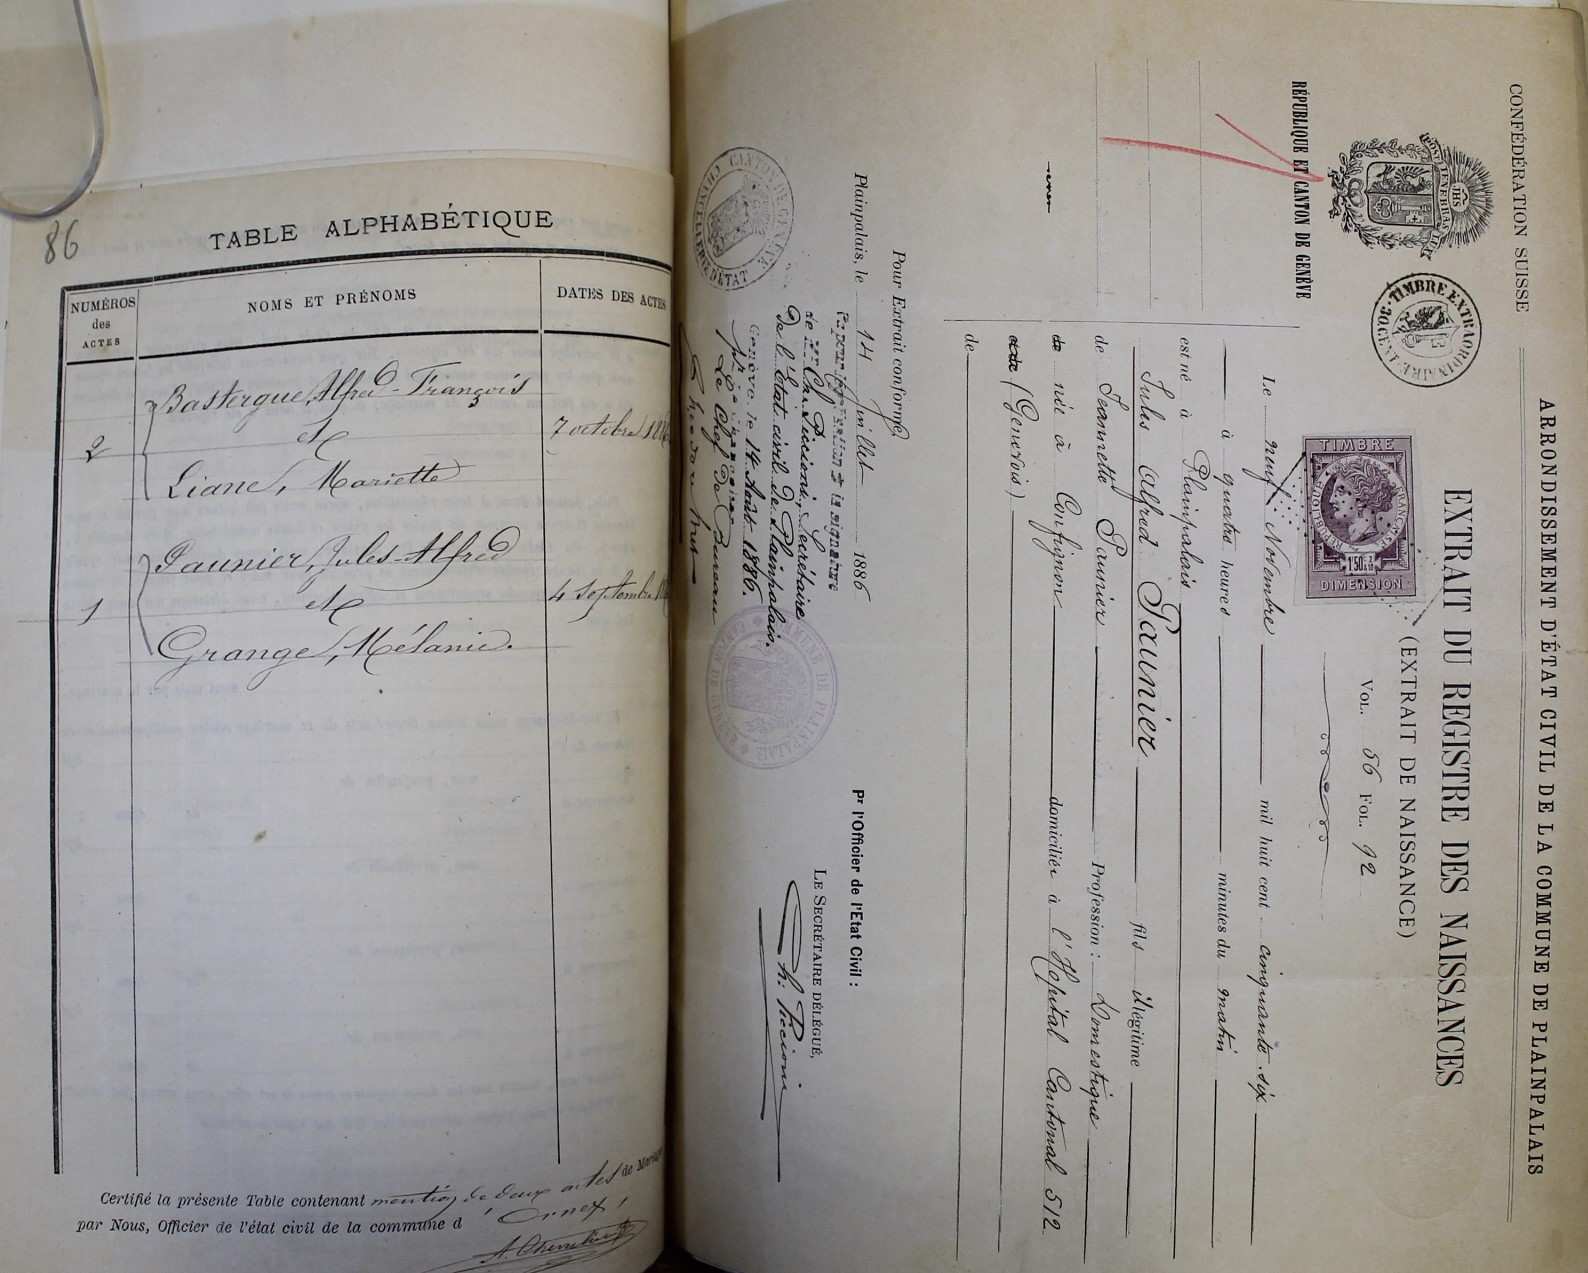 86
TABLE ALPHABÉTIQUE
NUMÉROS
des
ACTES
NOMS ET PRÉNOMS
DATES DES ACTES
Bastergue, Alfred-François
2
et
7 octobre
Liane, Mariette
Paunier, Jules-Alfred
1
et
4 septembre
Grange, Mélanie.
Certifié la présente Table contenant mention de deux actes de
par Nous, Officier de l'état civil de la commune d'Ornex,
CONFÉDÉRATION SUISSE
POST TENEBRAS LUX
RÉPUBLIQUE ET CANTON DE GENÈVE
TIMBRE EXTRAORDINAIRE
ARRONDISSEMENT D'ÉTAT CIVIL DE LA COMMUNE DE PLAINPALAIS
EXTRAIT DU REGISTRE DES NAISSANCES
(EXTRAIT DE NAISSANCE)
VOL. 56 FOL. 92
TIMBRE
RÉPUBLIQUE FRANÇAISE
1F50
DIMENSION
Le neuf Novembre mil huit cent cinquante six
à quatre heures minutes du matin
est né à Plainpalais
Jules Alfred Paunier fils illégitime
de Jeannette Paunier Profession : Domestique
née à Confignon domiciliée à l'Hôpital Cantonal 512
(Genevois)
de
Pour Extrait conforme,
Plainpalais, le 14 Juillet 1886
Pr l'Officier de l'Etat Civil :
LE SECRÉTAIRE DÉLÉGUÉ,
Ch. Piccioni
Vu pour légalisation de la signature
de Mr Ch. Piccioni, Secrétaire
de l'État civil de Plainpalais.
Genève le 14 Août 1886.
Le Chef de Bureau
CANTON DE GENÈVE
CHANCELLERIE D'ÉTAT
COMMUNE DE PLAINPALAIS
CANTON DE GENÈVE